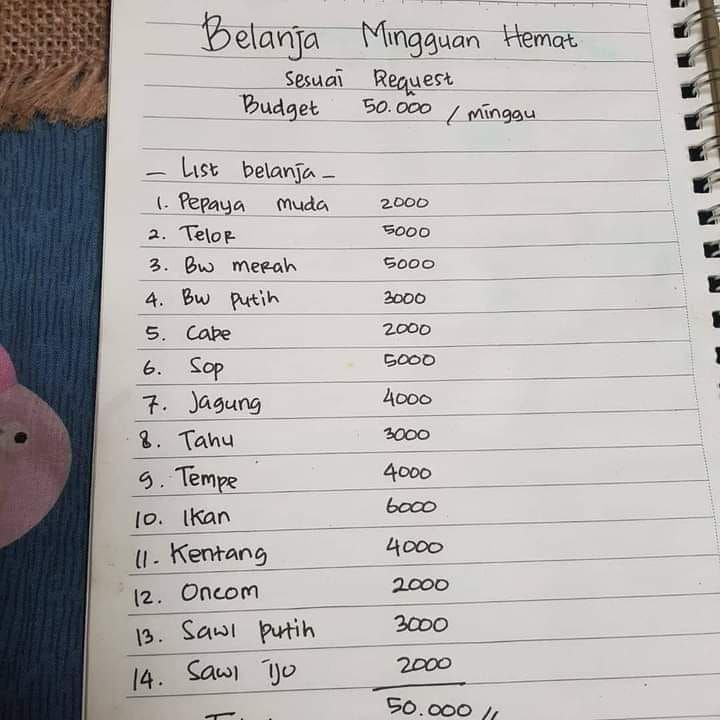 Belanja Mingguan Hemat
Sesuai Request
Budget 50.000 / minggu
- List belanja -
1. Pepaya muda 2000
2. Telor 5000
3. Bw merah 5000
4. Bw putih 3000
5. Cabe 2000
6. Sop 5000
7. Jagung 4000
8. Tahu 3000
9. Tempe 4000
10. Ikan 6000
11. Kentang 4000
12. Oncom 2000
13. Sawi putih 3000
14. Sawi ijo 2000
50.000 //